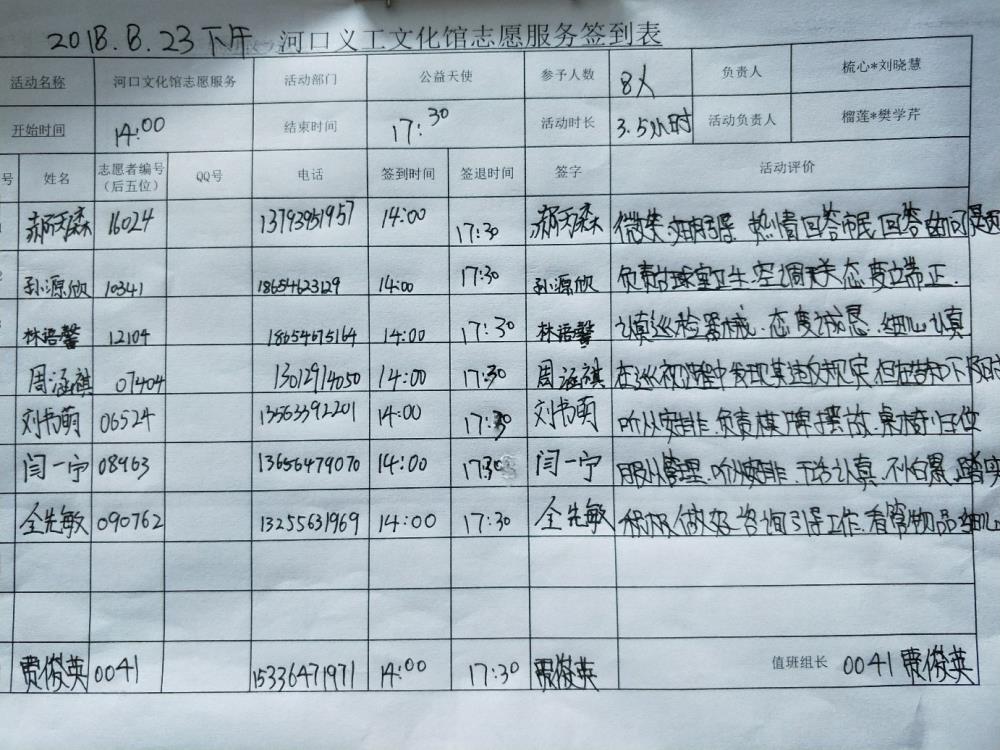 2018.8.23下午 河口义工文化馆志愿服务签到表
活动名称 河口文化馆志愿服务 活动部门 公益天使 参予人数 8人 负责人 梳心*刘晓慧
开始时间 14:00 结束时间 17:30 活动时长 3.5小时 活动负责人 榴莲*樊学芹
号 姓名 志愿者编号（后五位） QQ号 电话 签到时间 签退时间 签字 活动评价
16024 13793951957 14:00 17:30 微笑 热情回答市民 回答
孙源欣 10341 18654623129 14:00 17:30 孙源欣 负责台球室卫生.空调开关态度端正.
林语馨 12104 18654675164 14:00 17:30 林语馨 认真巡检器械.态度诚恳.细心认真
周涵祺 07404 13012914050 14:00 17:30 周涵祺 在巡视过程中发现其违反规定
刘书萌 06524 13563392201 14:00 17:30 刘书萌 听从安排.负责棋牌摆放.桌椅归位
闫一宁 08963 13656479070 14:00 17:30 闫一宁 服从管理.听从安排.工作认真.不怕累.踏实
全先敏 090762 13255631969 14:00 17:30 全先敏 积极做好咨询引导工作.看管物品细心
贾俊英 0041 15336471971 14:00 17:30 贾俊英 值班组长 0041 贾俊英